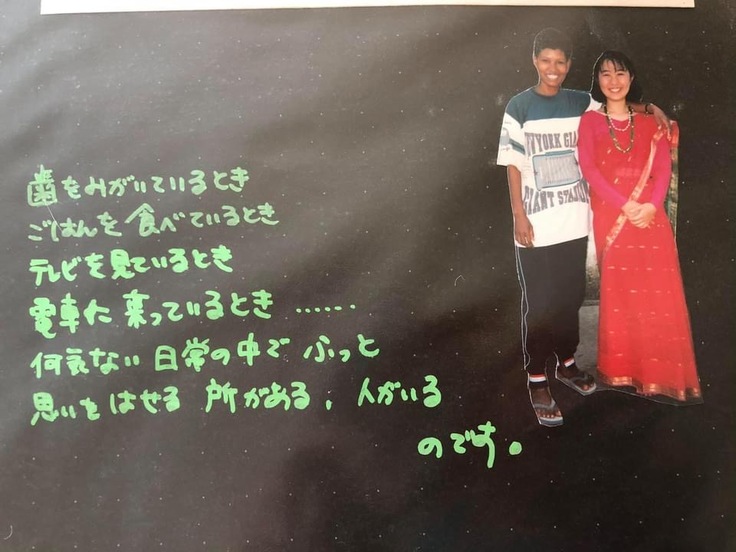 歯をみがいているとき
ごはんを食べているとき
テレビを見ているとき
電車に乗っているとき ……
何気ない日常の中で ふっと
思いをはせる 所がある、人がいる
のです。
YORK GIA
GIANT STADIU